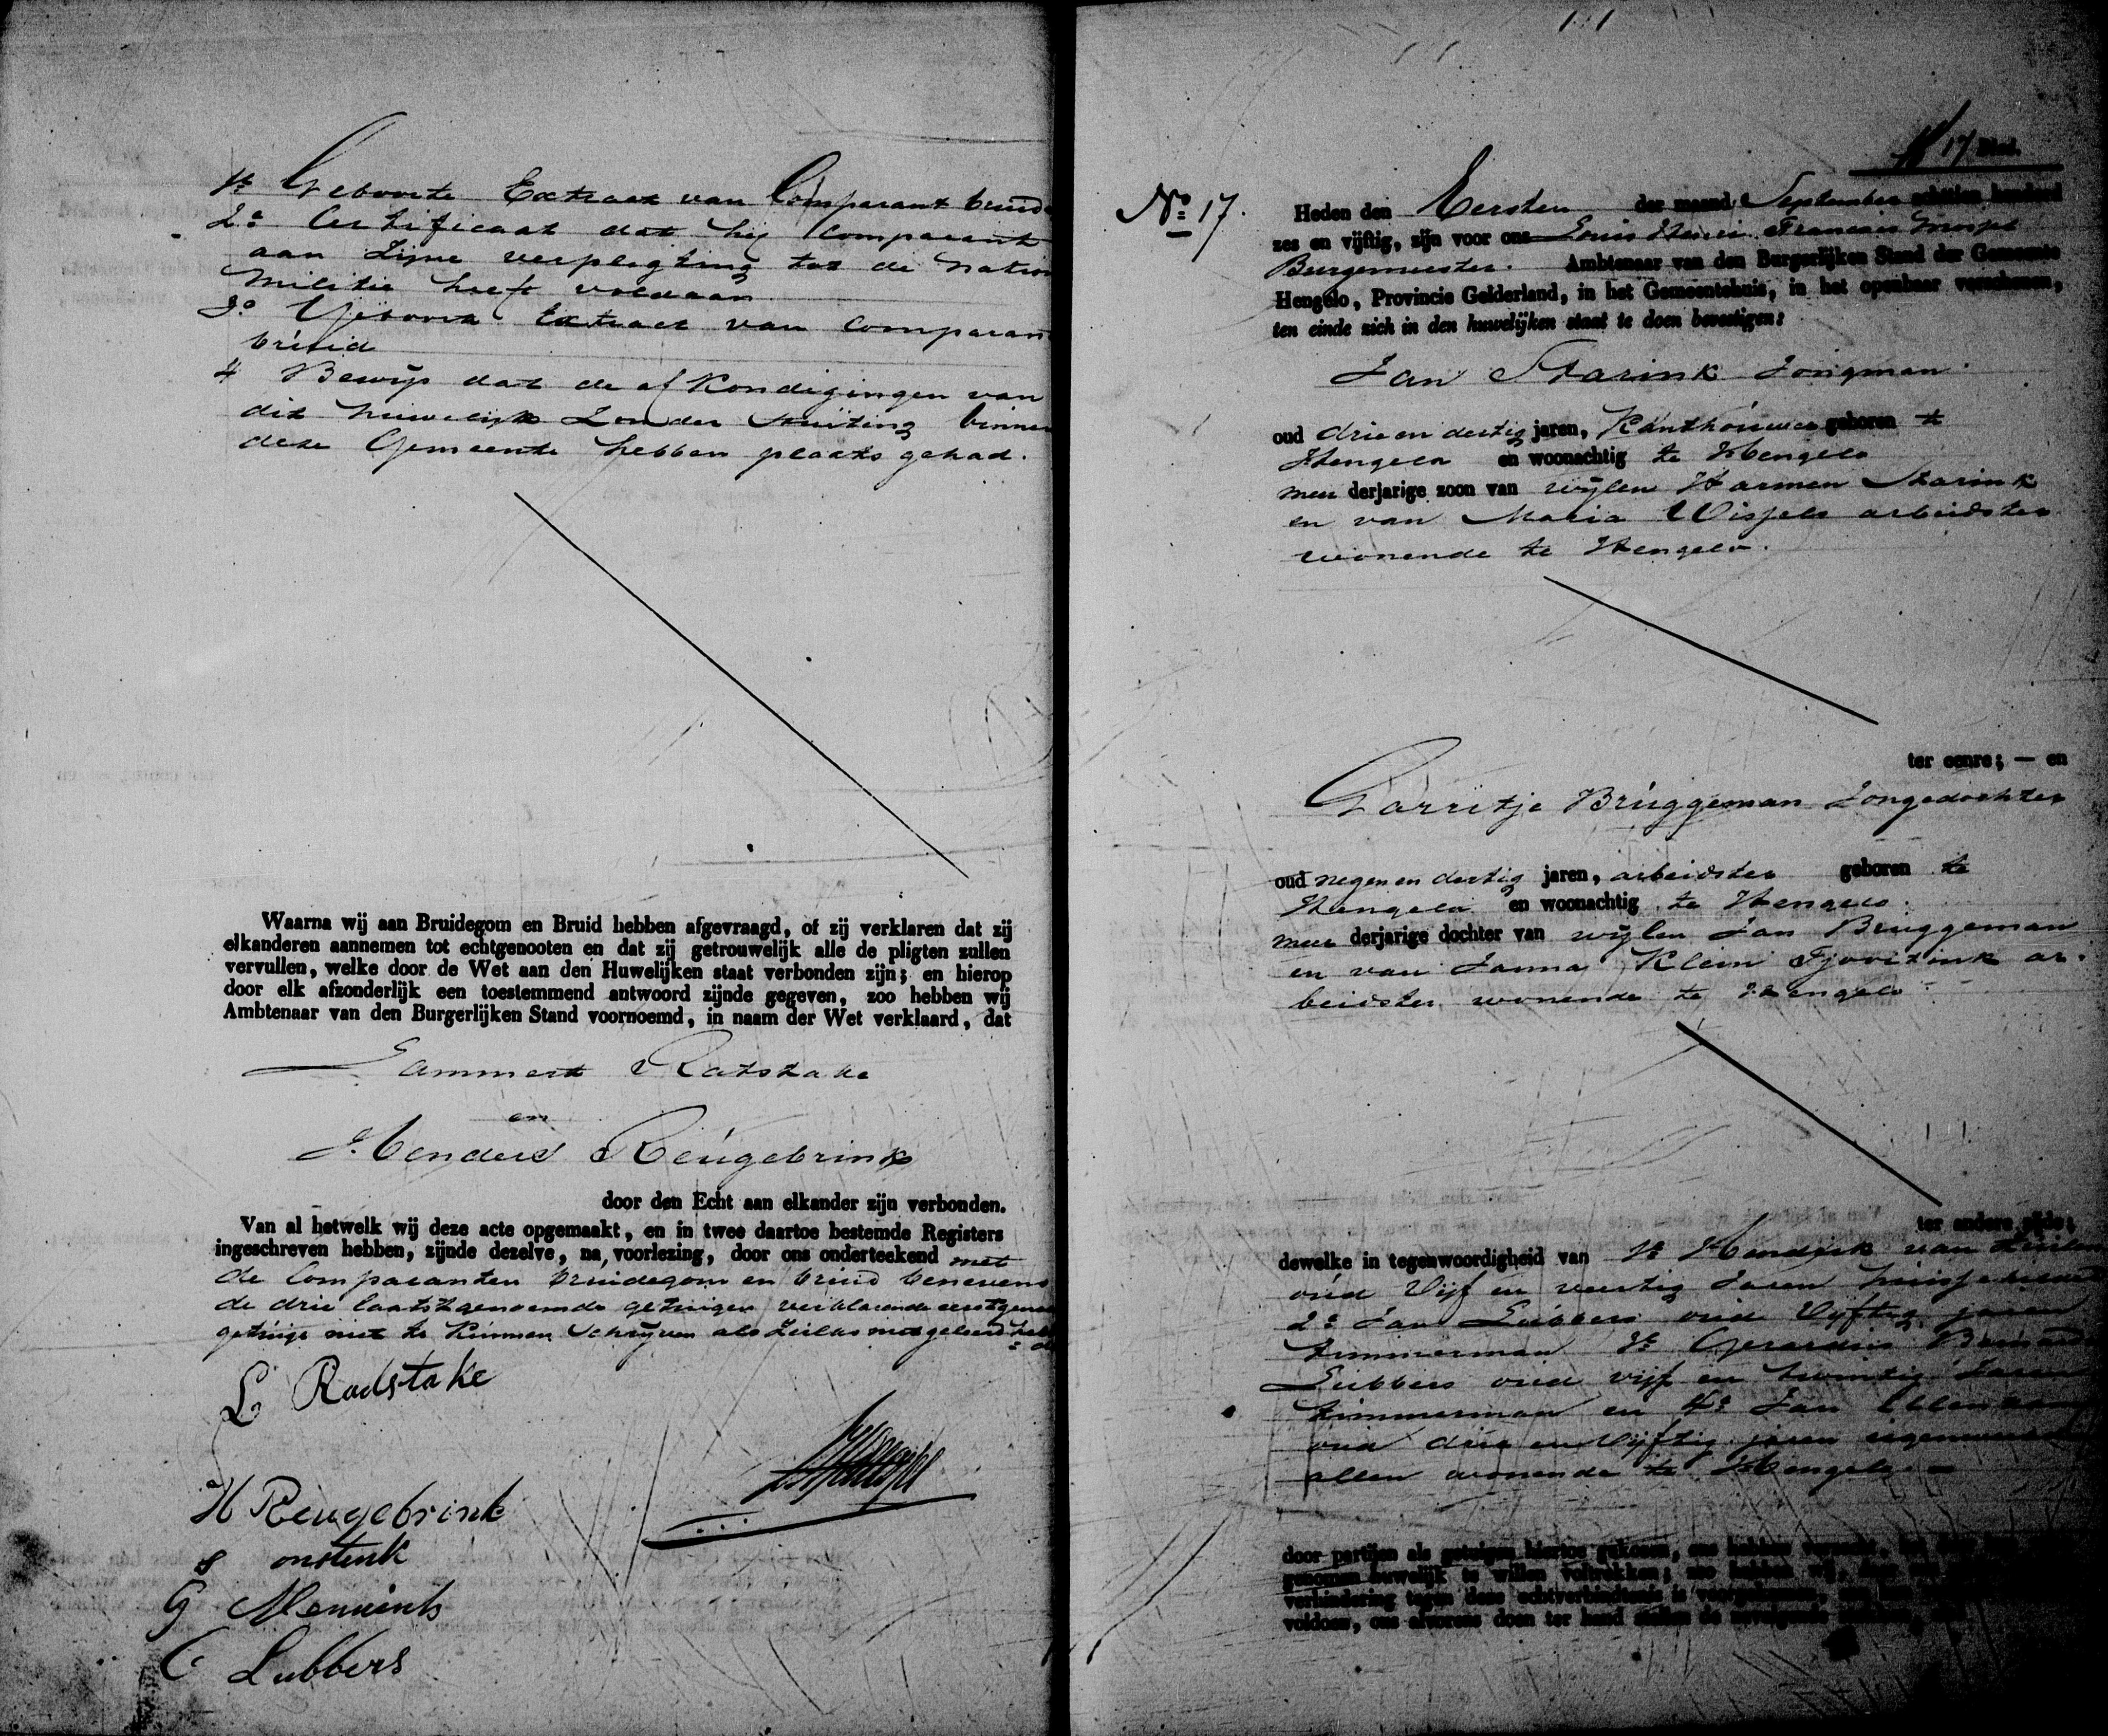 1o Geboorte Extract van Comparant bruid
2o Certificaat dat hij Comparant
aan Zijne verpligting tot de Nation
Militie heeft voldaan
3o Geboorte Extract van Comparan
bruid
4 Bewijs dat de afkondigingen van
dit huwelijk Zonder Stuiting binnen
deze Gemeente hebben plaats gehad.
Waarna wij aan Bruidegom en Bruid hebben afgevraagd, of zij verklaren dat zij
elkanderen aannemen tot echtgenooten en dat zij getrouwelijk alle de pligten zullen
vervullen, welke door de Wet aan den Huwelijken staat verbonden zijn; en hierop
door elk afzonderlijk een toestemmend antwoord zijnde gegeven, zoo hebben wij
Ambtenaar van den Burgerlijken Stand voornoemd, in naam der Wet verklaard, dat
Lammert Ratstake
en
Henders Reugebrink
door den Echt aan elkander zijn verbonden.
Van al hetwelk wij deze acte opgemaakt, en in twee daartoe bestemde Registers
ingeschreven hebben, zijnde dezelve, na voorlezing, door ons onderteekend met
de Comparanten bruidegom en bruid benevens
de drie laatstgenoemde getuigen verklarende eerstgen
getuige niet te Kunnen Schrijven als Zulks niet geleerd heb
L Radstake
H Reugebrink
onstenk
G
C Lubbers
17 Blad.
No 17.
Heden den Eersten der maand September achttien honderd
zes en vijftig, zijn voor ons Louis Henri Francois
Burgemeester. Ambtenaar van den Burgerlijken Stand der Gemeente
Hengelo, Provincie Gelderland, in het Gemeentehuis, in het openbaar verschenen,
ten einde zich in den huwelijken staat te doen bevestigen:
Jan Starink Jongman
oud drie en dertig jaren, geboren te
Hengelo en woonachtig te Hengelo
meerderjarige zoon van wijlen Harmen Starink
en van Maria Wissels arbeidster
wonende te Hengelo.
ter eenre; — en
Garritje Bruggeman Jongedochter
oud negen en dertig jaren, arbeidster geboren te
Hengelo en woonachtig te Hengelo.
meerderjarige dochter van wijlen Jan Bruggeman
en van Janna Klein ar-
beidster wonende te Hengelo
ter andere zijde;
dewelke in tegenwoordigheid van 1o Hendrik van
oud Vijf en veertig Jaren
2o Jan Lubbers oud Vyftig jaren
timmerman 3o Gerardus
Lubbers oud vijf en twintig Jaren
timmerman en 4o Jan
oud drie en Vijftig jaren
allen wonende te Hengelo
door partijen als getuigen hiertoe gekozen, ons hebben
genomen huwelijk te willen voltrekken; zoo hebben wij,
verhindering tegen deze echtverbindtenis is voorgekomen,
voldoen, ons alvorens doen ter hand stellen de navolgende